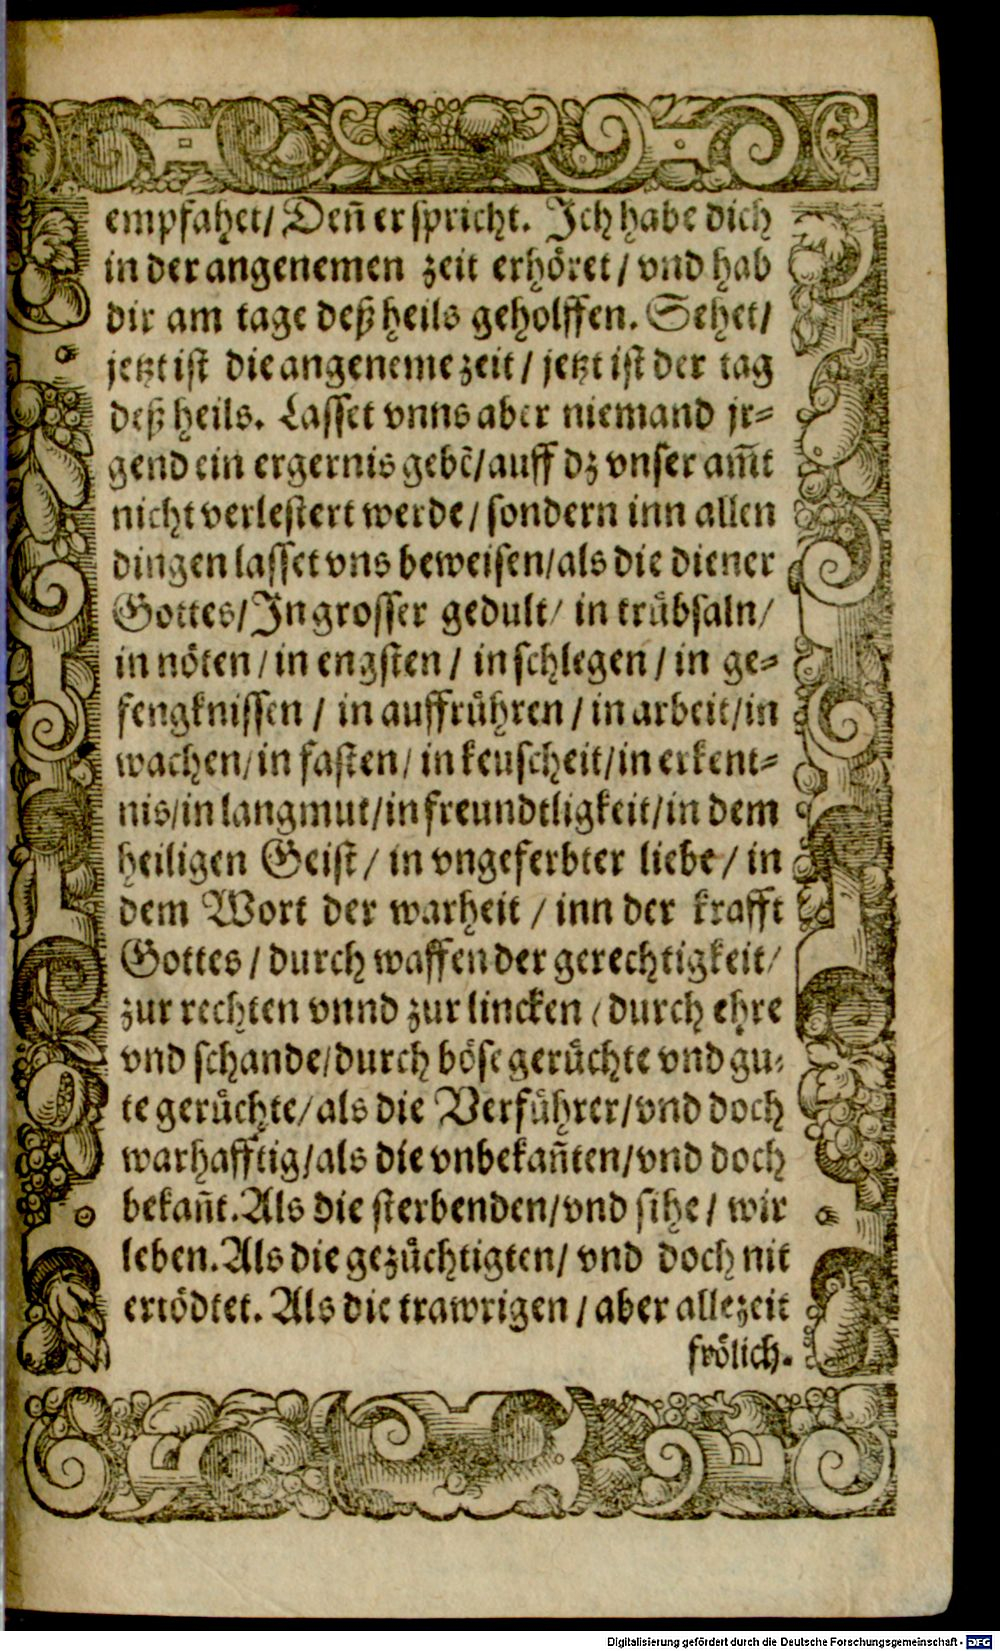 empfahet/ Deñ er spricht. Ich habe dich
in der angenemen zeit erhöret / vnd hab
dir am tage deß heils geholffen. Sehet/
jetzt ist die angeneme zeit / jetzt ist der tag
deß heils. Lasset vnns aber niemand jr-
gend ein ergernis gebẽ/ auff dz vnser am̃t
nicht verlestert werde / sondern inn allen
dingen lasset vns beweisen/ als die diener
Gottes/ In grosser gedult/ in trübsaln/
in nöten / in engsten / in schlegen / in ge-
fengknissen / in auffrühren / in arbeit/ in
wachen/ in fasten/ in keuscheit/ in erkent-
nis/ in langmut/ in freundtligkeit/ in dem
heiligen Geist / in vngeferbter liebe / in
dem Wort der warheit / inn der krafft
Gottes / durch waffen der gerechtigkeit/
zur rechten vnnd zur lincken / durch ehre
vnd schande/ durch böse gerüchte vnd gu-
te gerüchte/ als die Verführer/ vnd doch
warhafftig/ als die vnbekañten/ vnd doch
bekañt. Als die sterbenden/ vnd sihe / wir
leben. Als die gezüchtigten/ vnd doch nit
ertödtet. Als die trawrigen / aber allezeit
frölich.
Digitalisierung gefördert durch die Deutsche Forschungsgemeinschaft - DFG